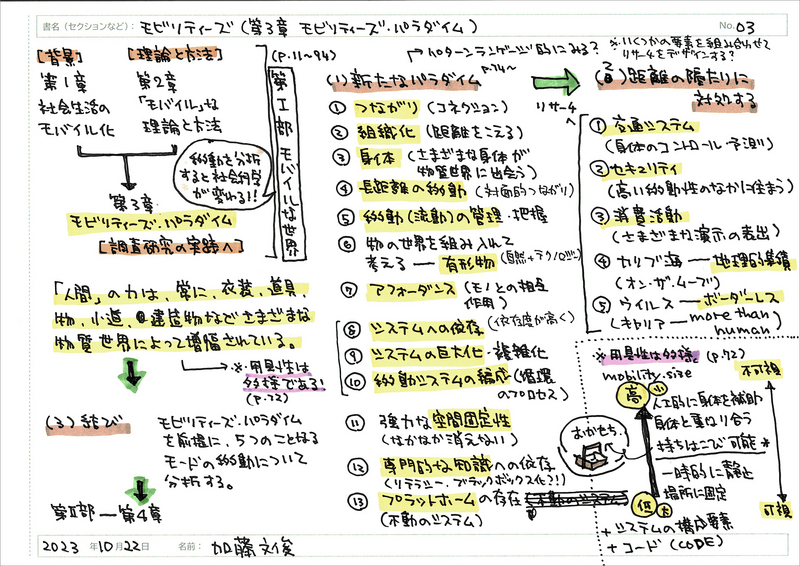 書名(セクションなど): モビリティーズ(第3章 モビリティーズ・パラダイム)
No. 03
[背景]
第1章
社会生活の
モバイル化
[理論と方法]
第2章
「モバイル」な
理論と方法
(P.11~94)
第Ⅰ部 モバイルな世界
移動を分析
すると社会科学
が変わる!!
第3章
モビリティーズ・パラダイム
[調査研究の実践へ]
「人間」の力は、常に、衣装、道具、
物、小道、建造物などさまざまな
物質世界によって増幅されている。
※用具性は
多様である!
(P.72)
(3)結び
モビリティーズ・パラダイム
を前提に、5つのことなる
モードの移動について
分析する。
第Ⅱ部 — 第4章
パターンランゲージ的にみる?
(1)新たなパラダイム
P.74~
① つながり(コネクション)
② 組織化(距離をこえる)
③ 身体(さまざまな身体が
物質世界に出会う)
④ 長距離の移動(対面的つながり)
⑤ 移動(流動)の管理・把握
⑥ 物の世界を組み入れて
考える — 有形物(自然+テクノロジー)
⑦ アフォーダンス(モノとの相互
作用)
⑧ システムへの依存(依存度が高く)
⑨ システムの巨大化・複雑化
⑩ 移動システムの編成(循環
のプロセス)
⑪ 強力な空間固定性
(なかなか消えない)
⑫ 専門的な知識への依存
(リテラシー・ブラックボックス化?!)
⑬ プラットホームの存在
(不動のシステム)
※いくつかの要素を組み合わせて
リサーチをデザインする?
リサーチ
(2)距離の隔たりに
対処する
① 交通システム
(身体のコントロール・予測)
② セキュリティ
(高い移動性のなかに住まう)
③ 消費活動
(さまざまな演示の表出)
④ カリブ海 — 地理的集積
(オン・ザ・ムーブ)
⑤ ウイルス — ボーダーレス
(キャリア — more than
human)
※用具性は多様 (P.72)
mobility.size
不可視
高 小
人工的に身体を補助
身体と重ね合う
持ちはこび可能 *
おかもち
一時的に静止
場所に固定
低 大
可視
+システムの構成要素
+コード(CODE)
2023 年 10 月 22 日 名前: 加藤文俊